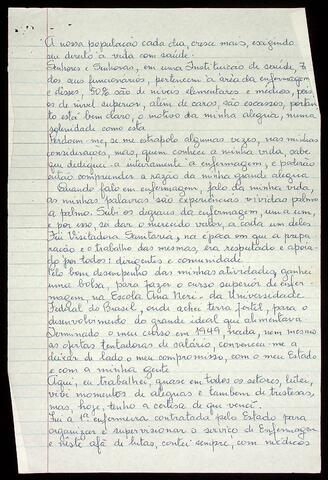 A nossa população cada dia, cresce mais, exigindo
seu direito à vida com saúde.
Senhores e Senhoras, em uma Instituição de saúde, 70
dos seus funcionários, pertencem à área da enfermagem
e desses, 50% são de níveis elementares e médios, pois
os de nível superior, além de caros, são escassos, portan
to está bem claro, o motivo da minha alegria, numa
solenidade como esta
Perdoem-me, se me extrapolo algumas vezes, nas minhas
considerações, mas, quem conhece a minha vida, sabe
que dediquei-a inteiramente à enfermagem, e poderão
então compreender a razão da minha grande alegria
Quando falo em enfermagem, falo da minha vida,
as minhas palavras são experiências vividas palmo
a palmo. Subi os degraus da enfermagem, um a um,
e por isso, sei dar o merecido valor, a cada um deles
Fui Visitadora Sanitária, na época em que a prepa
ração e o trabalho das mesmas, era respeitado e apoia
do por todos: dirigentes e comunidade
Pelo bom desempenho das minhas atividades, ganhei
uma bolsa, para fazer o curso superior de enfer-
magem, na Escola Ana Neri - da Universidade
Federal do Brasil, onde achei terra fértil, para o
desenvolvimento do grande ideal que alimentava
Terminado o meu curso em 1949, nada, nem mesmo
as ofertas tentadoras de salário, convenceu-me a
deixar de lado o meu compromisso, com o meu Estado
e com a minha gente
Aqui, eu trabalhei, quase em todos os setores, lutei,
vivi momentos de alegrias e também de tristezas,
mas, hoje, tenho a certeza de que venci.
Fui a 1ª enfermeira contratada pelo Estado para
organizar e supervisionar o serviço de Enfermagem
e neste afã de lutas, contei sempre, com médicos